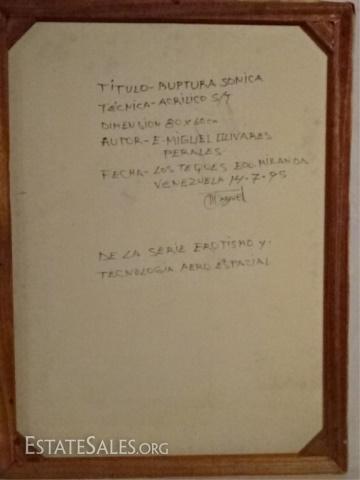 TÍTULO-RUPTURA SONICA
TÉCNICA-ACRÍLICO S/T
DIMENSION 80X60cm
AUTOR-E-MIGUEL OLIVARES
PERALES.
FECHA-LOS TEQUES EDO. MIRANDA
VENEZUELA 14-7-95
Miguel
DE LA SERIE EROTISMO Y-
TECNOLOGÍA AERO ESPACIAL
ESTATESALES.ORG